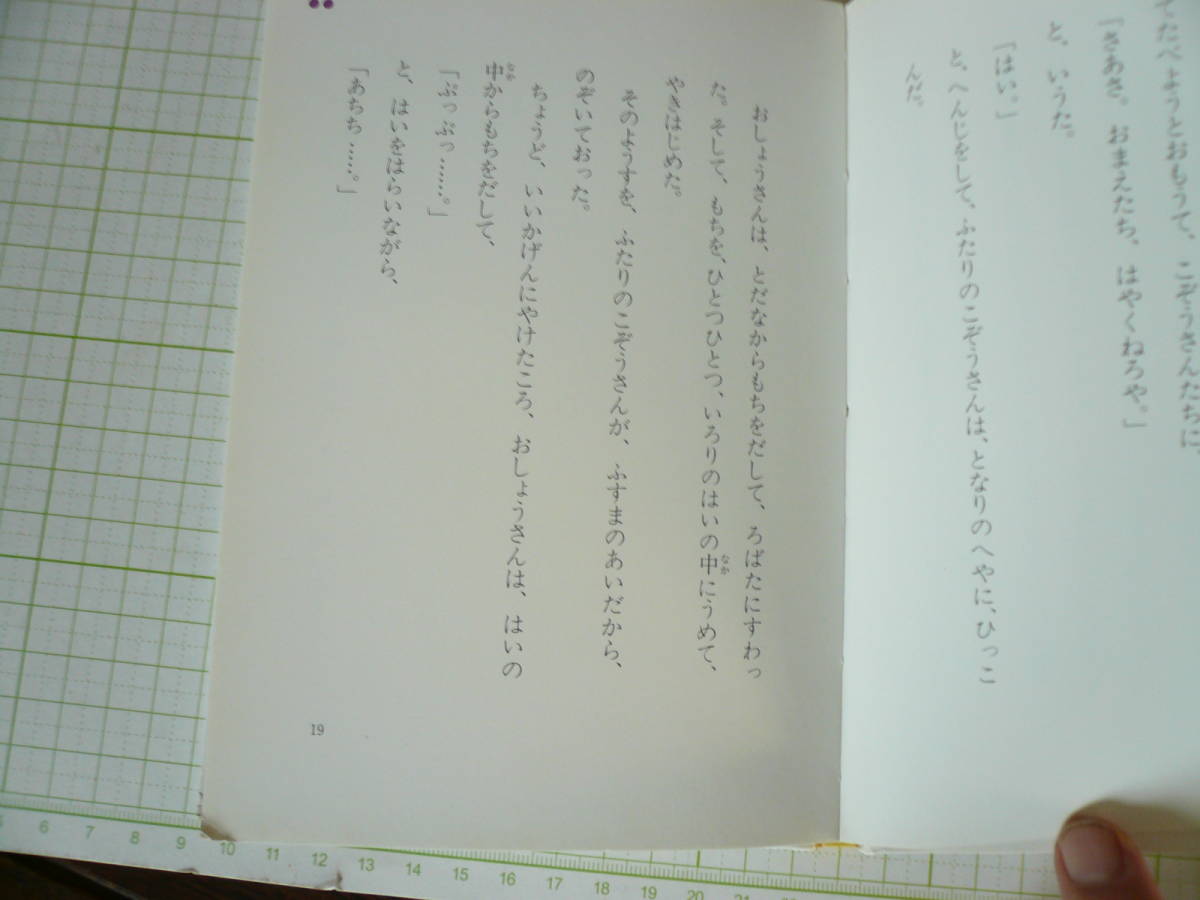 べようとおもって、こぞうさんたちに、
「さあさ。おまえたち、はやくねろや。」
と、いうた。
「はい。」
と、へんじをして、ふたりのこぞうさんは、となりのへやに、ひっこ
んだ。
おしょうさんは、とだなからもちをだして、ろばたにすわっ
た。そして、もちを、ひとつひとつ、いろりのはいの中にうめて、
なか
やきはじめた。
そのようすを、ふたりのこぞうさんが、ふすまのあいだから、
のぞいておった。
ちょうど、いいかげんにやけたころ、おしょうさんは、はいの
中からもちをだして、
なか
「ぷっ ぷっ……。」
と、はいをはらいながら、
「あちち……。」
19
6 7 8 9 10 11 12 13 14 15 16 17 18 19 20 21